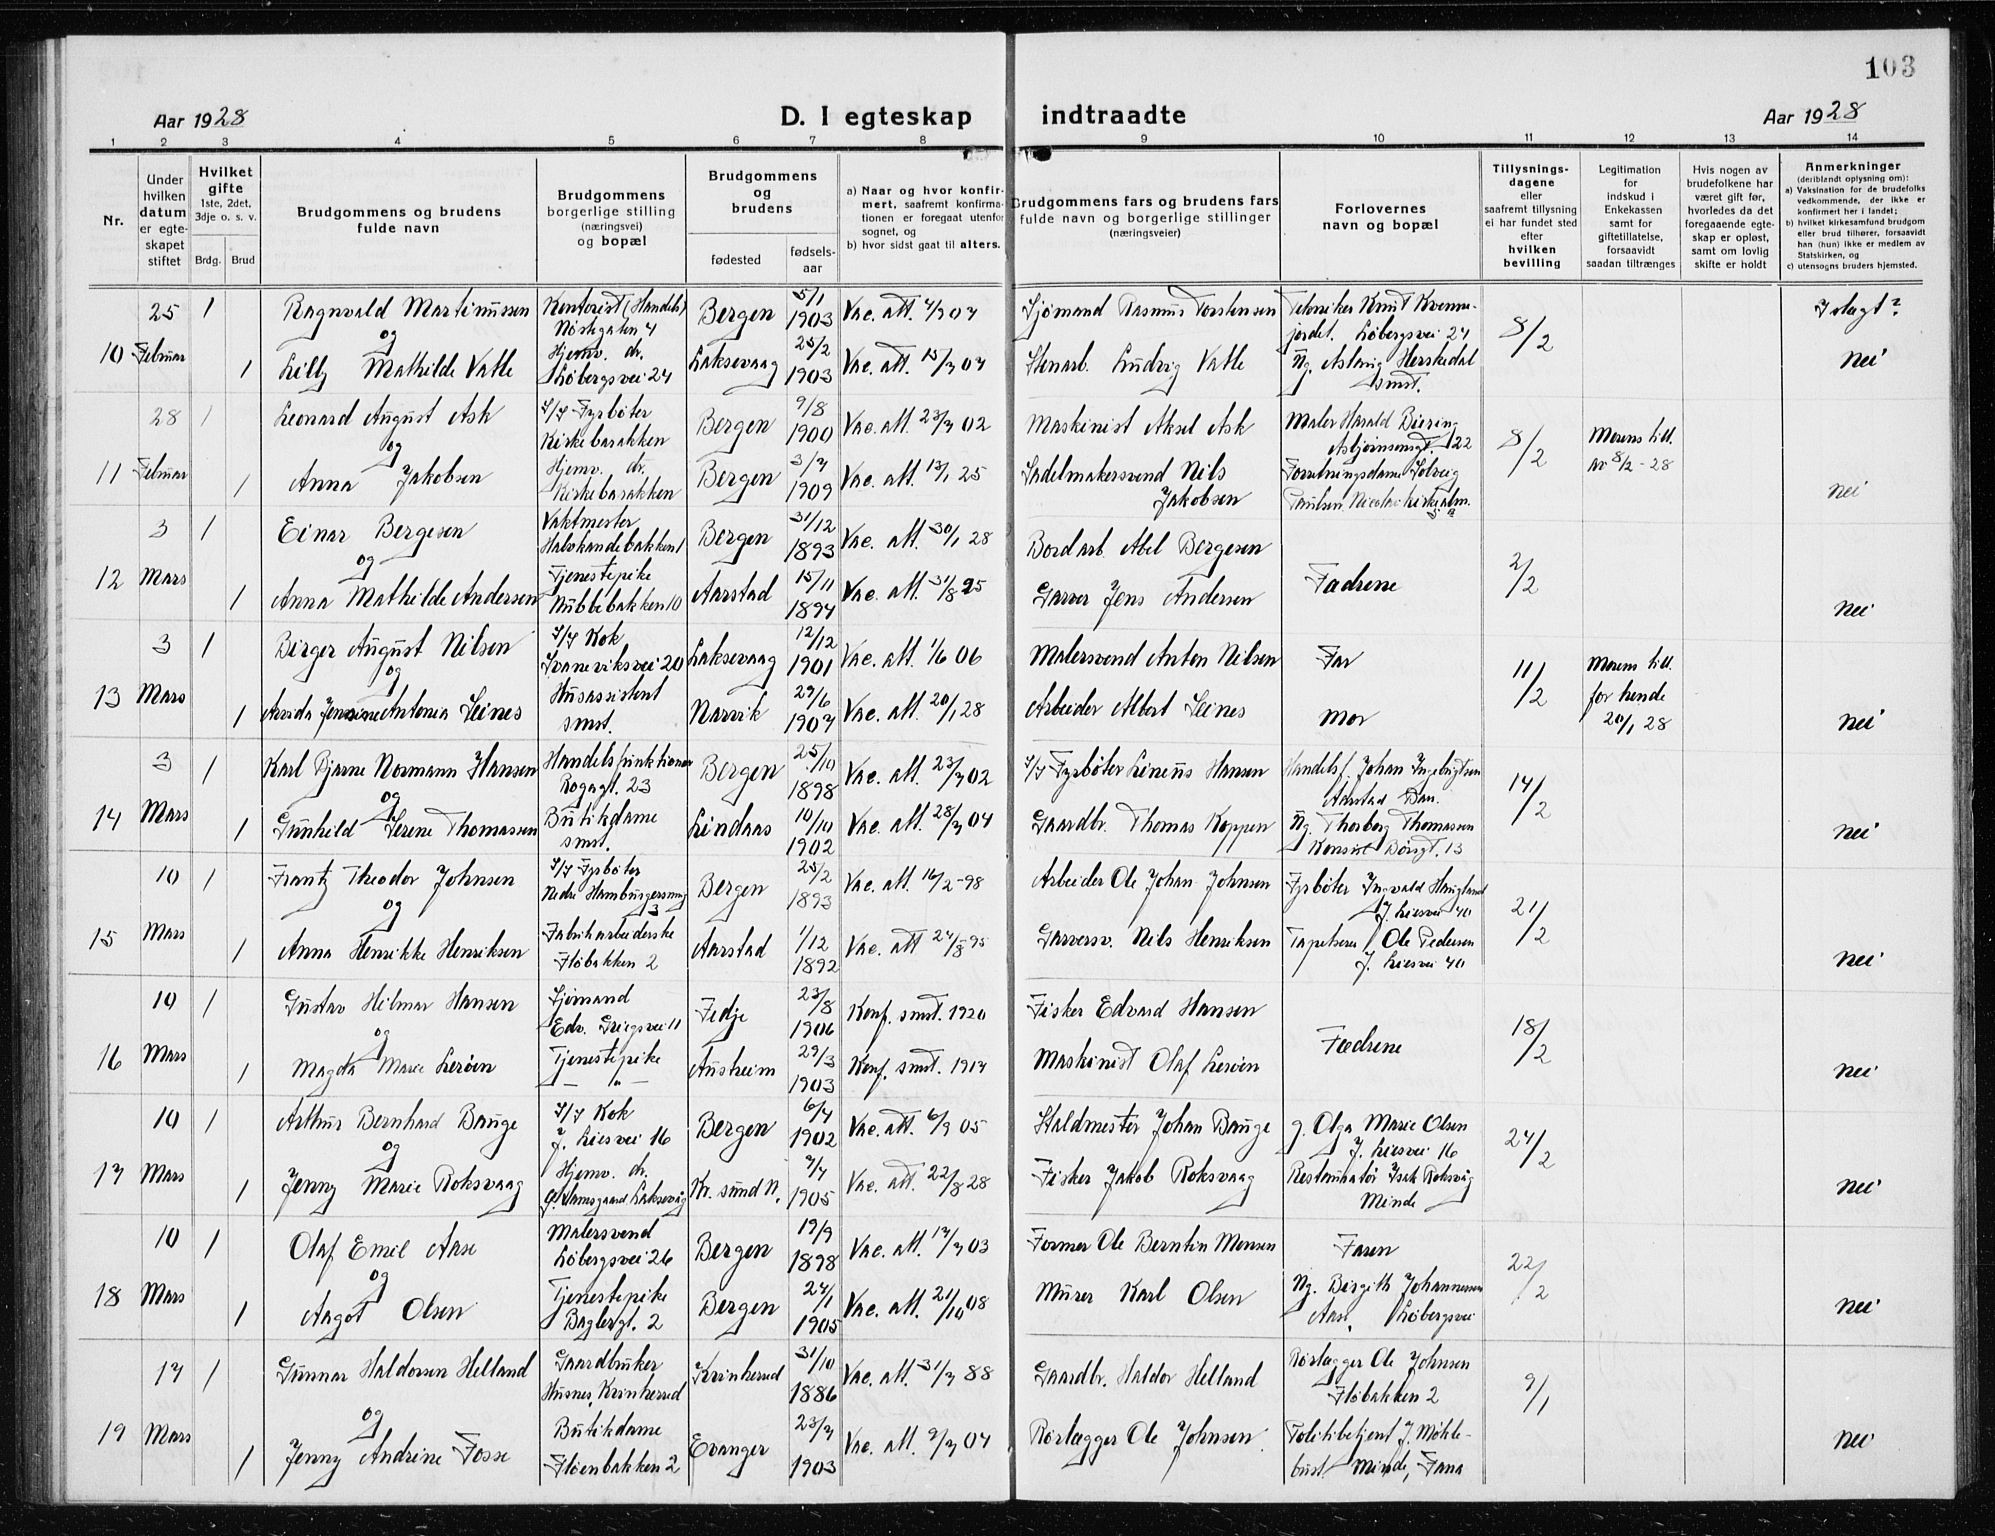 103
Aar 1928
D. I egteskap indtraadte
Aar 1928
1 2 3 4 5 6 7 8 9 10 11 12 13 14
Nr.
Under hvilken datum er egteskapet stiftet
Hvilket gifte 1ste, 2det, 3dje o. s. v.
Brdg. Brud
Brudgommens og brudens fulde navn
Brudgommens borgerlige stilling (næringsvei) og bopæl
Brudgommens og brudens
fødested fødsels-aar
a) Naar og hvor konfirmert, saafremt konfirmationen er foregaat utenfor sognet, og
b) hvor sidst gaat til alters.
Brudgommens fars og brudens fars fulde navn og borgerlige stillinger (næringsveier)
Forlovernes navn og bopæl
Tillysningsdagene eller saafremt tillysning ei har fundet sted efter hvilken bevilling
Legitimation for indskud i Enkekassen samt for giftetillatelse, forsaavidt saadan tiltrænges
Hvis nogen av brudefolkene har været gift før, hvorledes da det foregaaende egteskap er opløst, samt om lovlig skifte er holdt
Anmerkninger (deriblandt oplysning om):
a) Vaksination for de brudefolks vedkommende, der ikke er konfirmert her i landet;
b) hvilket kirkesamfund brudgom eller brud tilhører, forsaavidt han (hun) ikke er medlem av Statskirken, og
c) utensogns bruders hjemsted.
10 25 Februar
1 Ragnvald Martinussen Kontorist (Handels) Nöstegaten 4 Bergen 5/1 1903 Vac. att. 7/9 07 Sjömand Rasmus Torstensen Tekniker Knut Kvenne-jordet. Löbergsvei 24 8/2 Islagt?
og
1 Lilly Mathilde Vatle Hjemv. dr. Löbergsvei 24 Laksevaag 25/2 1903 Vac. att. 15/7 07 Stenarb. Ludvig Vatle Ug. Aslaug Herskedal smst. nei
11 28 Februar
1 Leonard August Ask S/S Fyrböter Kirkebarakken Bergen 9/8 1900 Vac. att. 23/7 02 Maskinist Aksel Ask Maler Harald Biering Asbjörnsensgt. 22 8/2 Morens till. av 8/2-28
og
1 Anna Jakobsen Hjemv. dr. Kirkebarakken Bergen 3/7 1909 Vac. att. 13/1 25 Sadelmakersvend Nils Jakobsen Forretningsdame Solveig Paulsen Nicolai Kirkealm. nei
12 3 Mars
1 Einar Bergesen Vaktmester Halvkandebakken 1 Bergen 31/12 1893 Vac. att. 30/1 28 Bordarb. Abel Bergesen Fædrene 2/2
og
1 Anna Mathilde Andersen Tjenestepike Nubbebakken 10 Aarstad 15/11 1894 Vac. att. 31/8 95 Garver Jens Andersen nei
13 3 Mars
1 Birger August Nilsen S/S Kok Svaneviksvei 20 Laksevaag 12/12 1901 Vac. att. 1/6 06 Malersvend Anton Nilsen Far 11/2 Morens till. for hende 20/1 28
og
1 Antonia Seines Husassistent smst. Narvik 29/6 1907 Vac. att. 20/1 28 Arbeider Albert Seines mor nei
14 3 Mars
1 Karl Bjarne Normann Hansen Handelsfunktionær Rogagt. 23 Bergen 25/10 1898 Vac. att. 23/7 02 S/S Fyrböter Linens Hansen Handelsf. Johan Ingebrigtsen Aarstad 14/2
og
1 Gunhild Serene Thomassen Butikdame smst. Lindaas 10/10 1902 Vac. att. 28/7 04 Gaardbr. Thomas Koppen Ug. Thorborg Thomassen 13 nei
15 10 Mars
1 Frantz Theodor Johnsen S/S Fyrböter Nedre Hamburgersmug 3 Bergen 25/2 1893 Vac. att. 16/2-98 Arbeider Ole Johan Johnsen Fyrböter Ingvald Haugland J. Liesvei 40 21/2
og
1 Anna Henrikke Henriksen Fabrikarbeiderske Flöbakken 2 Aarstad 1/12 1892 Vac. att 24/8-95 Garversv. Nils Henriksen Tapetserer Ole Pedersen J. Liesvei 40 nei
16 10 Mars
1 Gustav Hilmar Hansen Sjömand Edv. Griegsvei 11 Fedje 23/8 1906 Konf. smst. 1920 Fisker Edvard Hansen Fædrene 18/2
og
1 Magda Marie Leröen Tjenestepike — " — Austheim 29/3 1903 Konf. smst. 1917 Maskinist Olaf Leröen nei
17 10 Mars
1 Arthur Bernhard Bauge S/S Kok J. Liesvei 16 Bergen 6/7 1902 Vac. att. 6/9 05 Staldmester Johan Bauge g. Olga Marie Olsen J. Liesvei 16 24/2
og
1 Jenny Marie Roksvaag Hjemv. dr. Laksevåg Kr. sund N. 7/7 1905 Vac. att. 22/8 28 Fisker Jakob Roksvaag Restauratör Isak Roksvåg Minde nei
18 10 Mars
1 Olaf Emil Aase Malersvend Löbergsvei 26 Bergen 19/9 1898 Vac. att. 17/7 03 Former Ole Berntin Monsen Faren 22/2
og
1 Aagot Olsen Tjenestepike Baglergt. 2 Bergen 24/1 1905 Vac. att. 21/10 08 Murer Karl Olsen Ug. Bergith Johannessen Aase, Löbergsvei nei
19 17 Mars
1 Gunnar Haldorsen Helland Gaardbruker Husnes, Kvinherred Kvinherred 31/10 1886 Vac. att. 31/7 88 Gaardbr. Haldor Helland Rörlægger Ole Johnsen Flöbakken 2 9/1
og
1 Jenny Andrine Fosse Butikdame Flöenbakken 2 Evanger 23/7 1903 Vac. att. 9/7 04 Rörlægger Ole Johnsen. Politibetjent J. Möhle-bust Minde, Fana nei